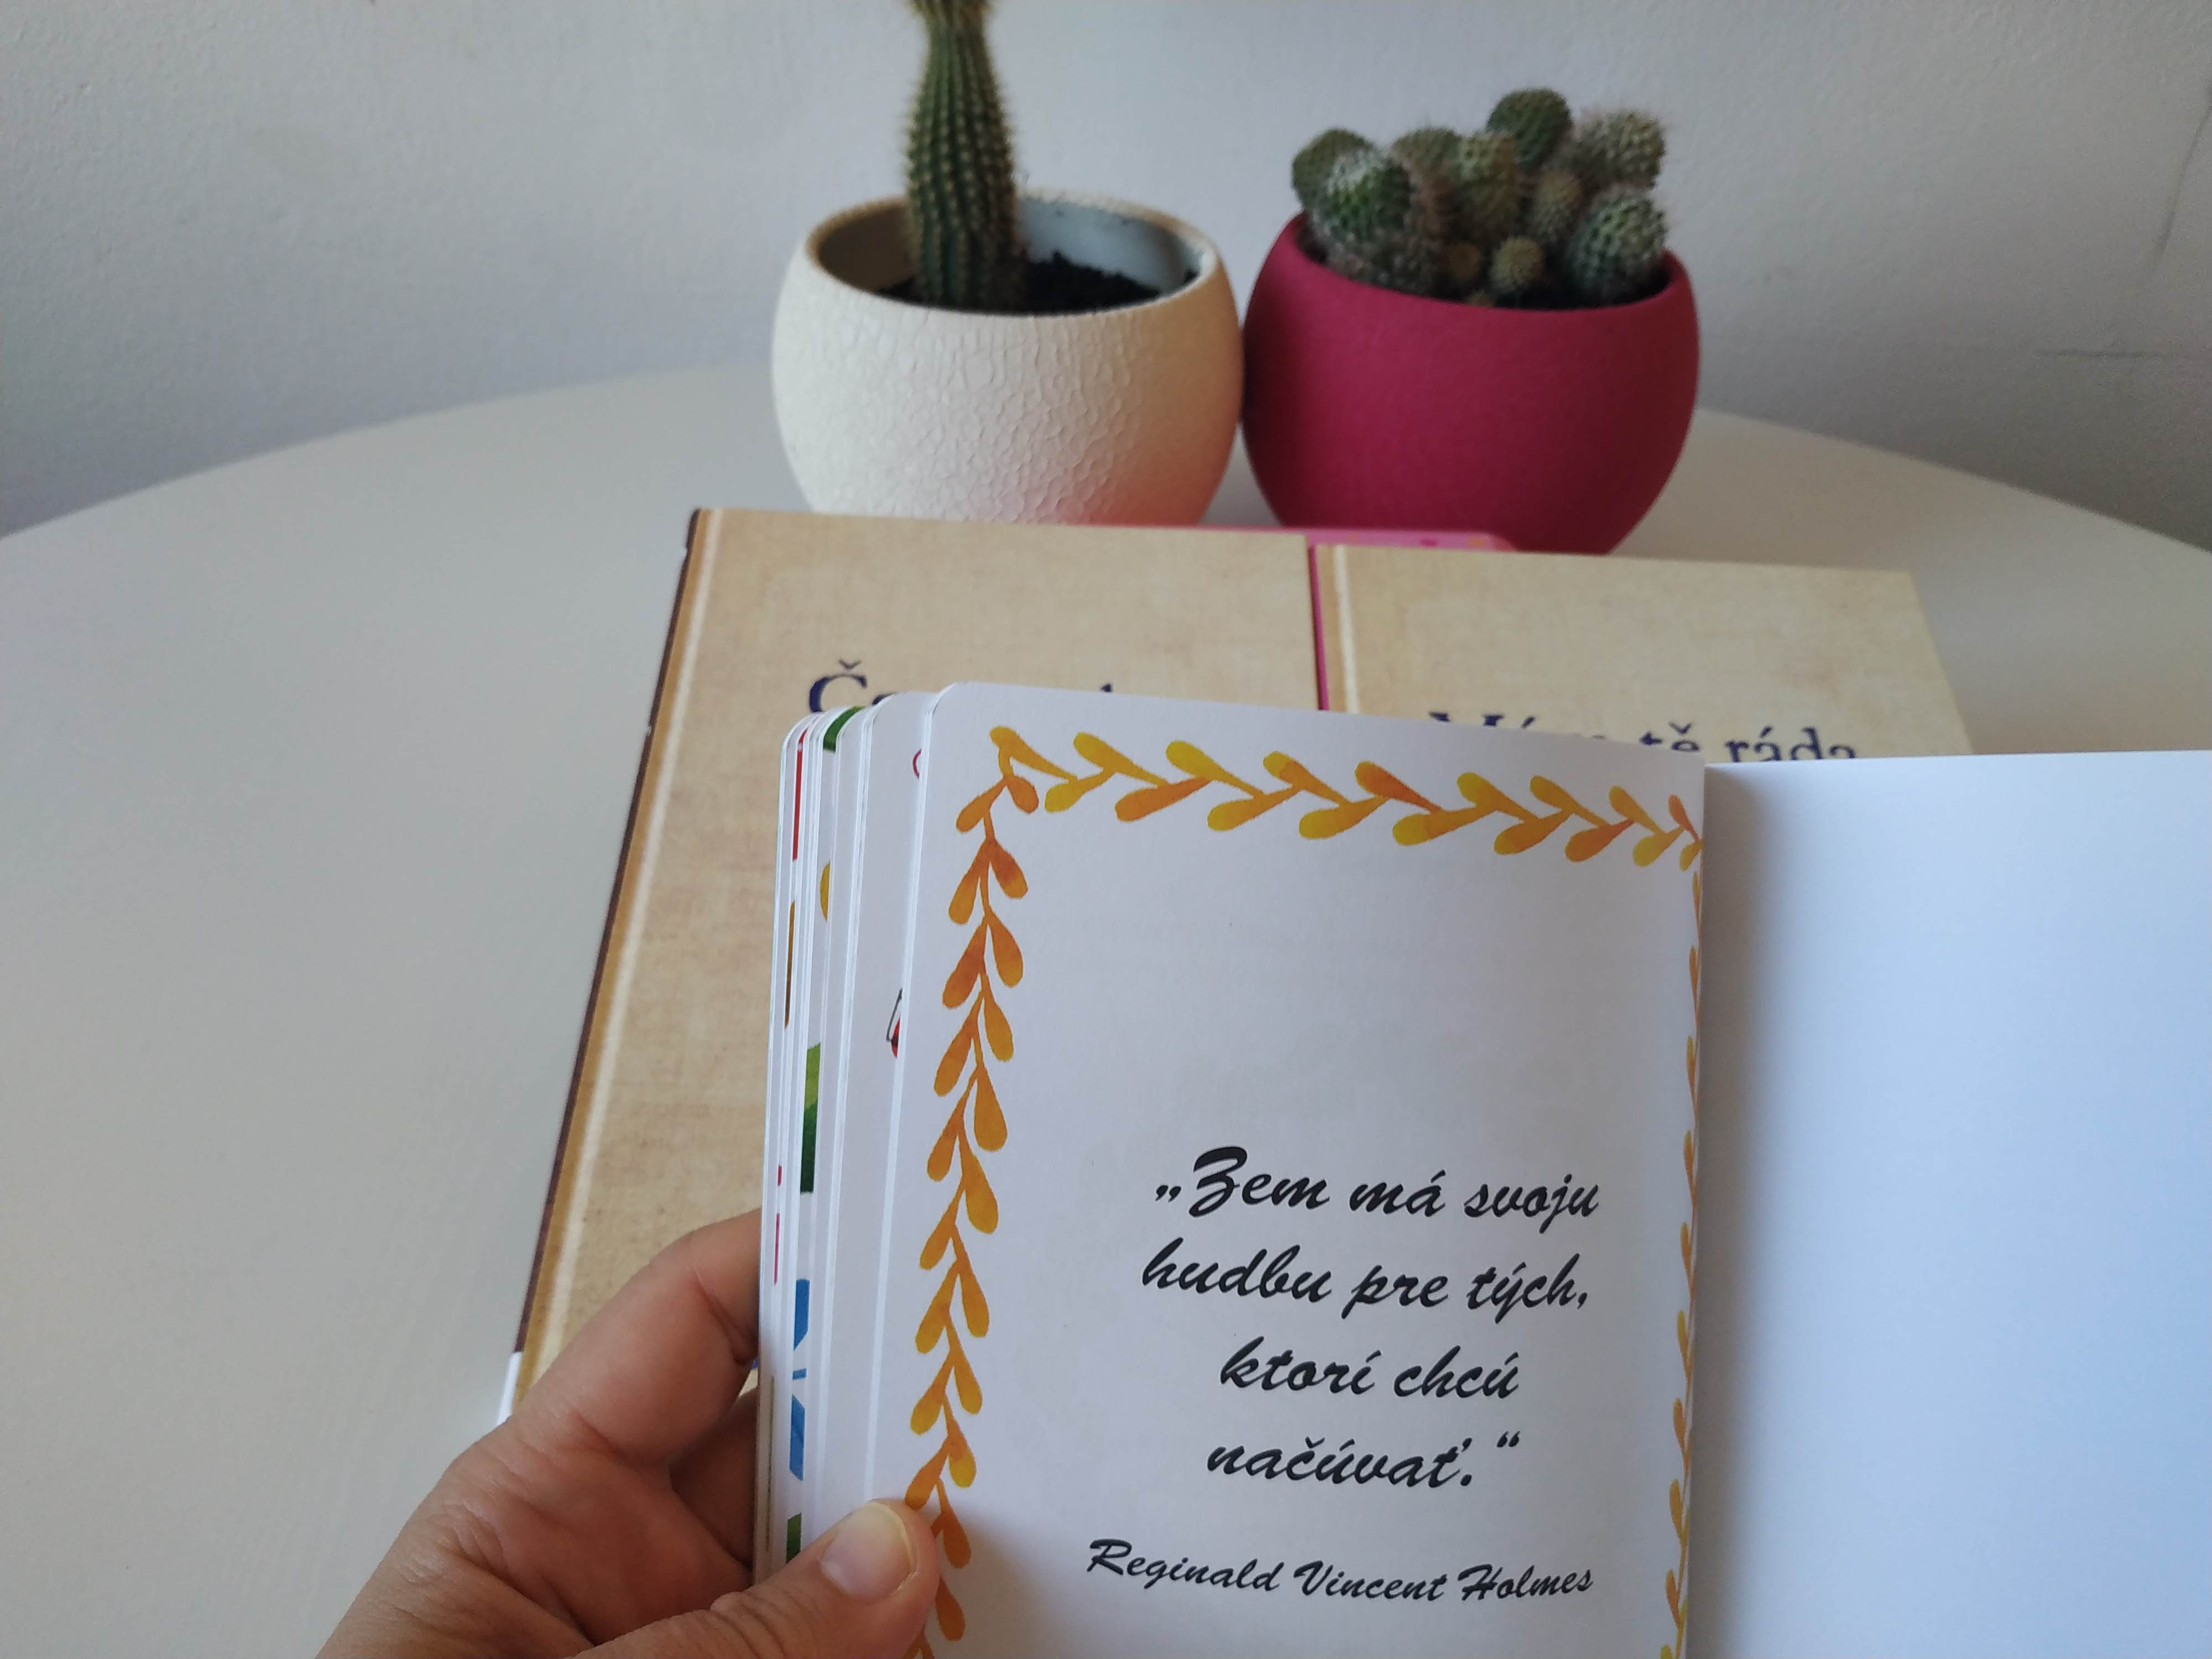 tě ráda
„Zem má svoju
hudbu pre tých,
ktorí chcú
načúvať.“
Reginald Vincent Holmes